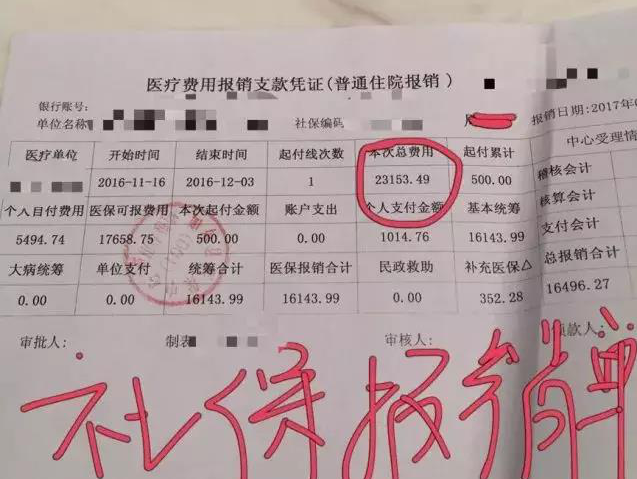 医疗费用报销支款凭证(普通住院报销 )
银行账号:
单位名称 社保编码 报销日期:2017年
医疗单位 开始时间 结束时间 起付线次数 本次总费用 起付累计 中心受理情
2016-11-16 2016-12-03 1 23153.49 500.00 稽核会计
个人自付费用 医保可报费用 本次起付金额 账户支出 个人支付金额 基本统筹 核算会计
5494.74 17658.75 500.00 0.00 1014.76 16143.99 支付会计
大病统筹 单位支付 统筹合计 医保报销合计 民政救助 补充医保 总报销合计
0.00 0.00 16143.99 16143.99 0.00 352.28 16496.27
审批人: 制表 审核人: 领款人
社保报销单